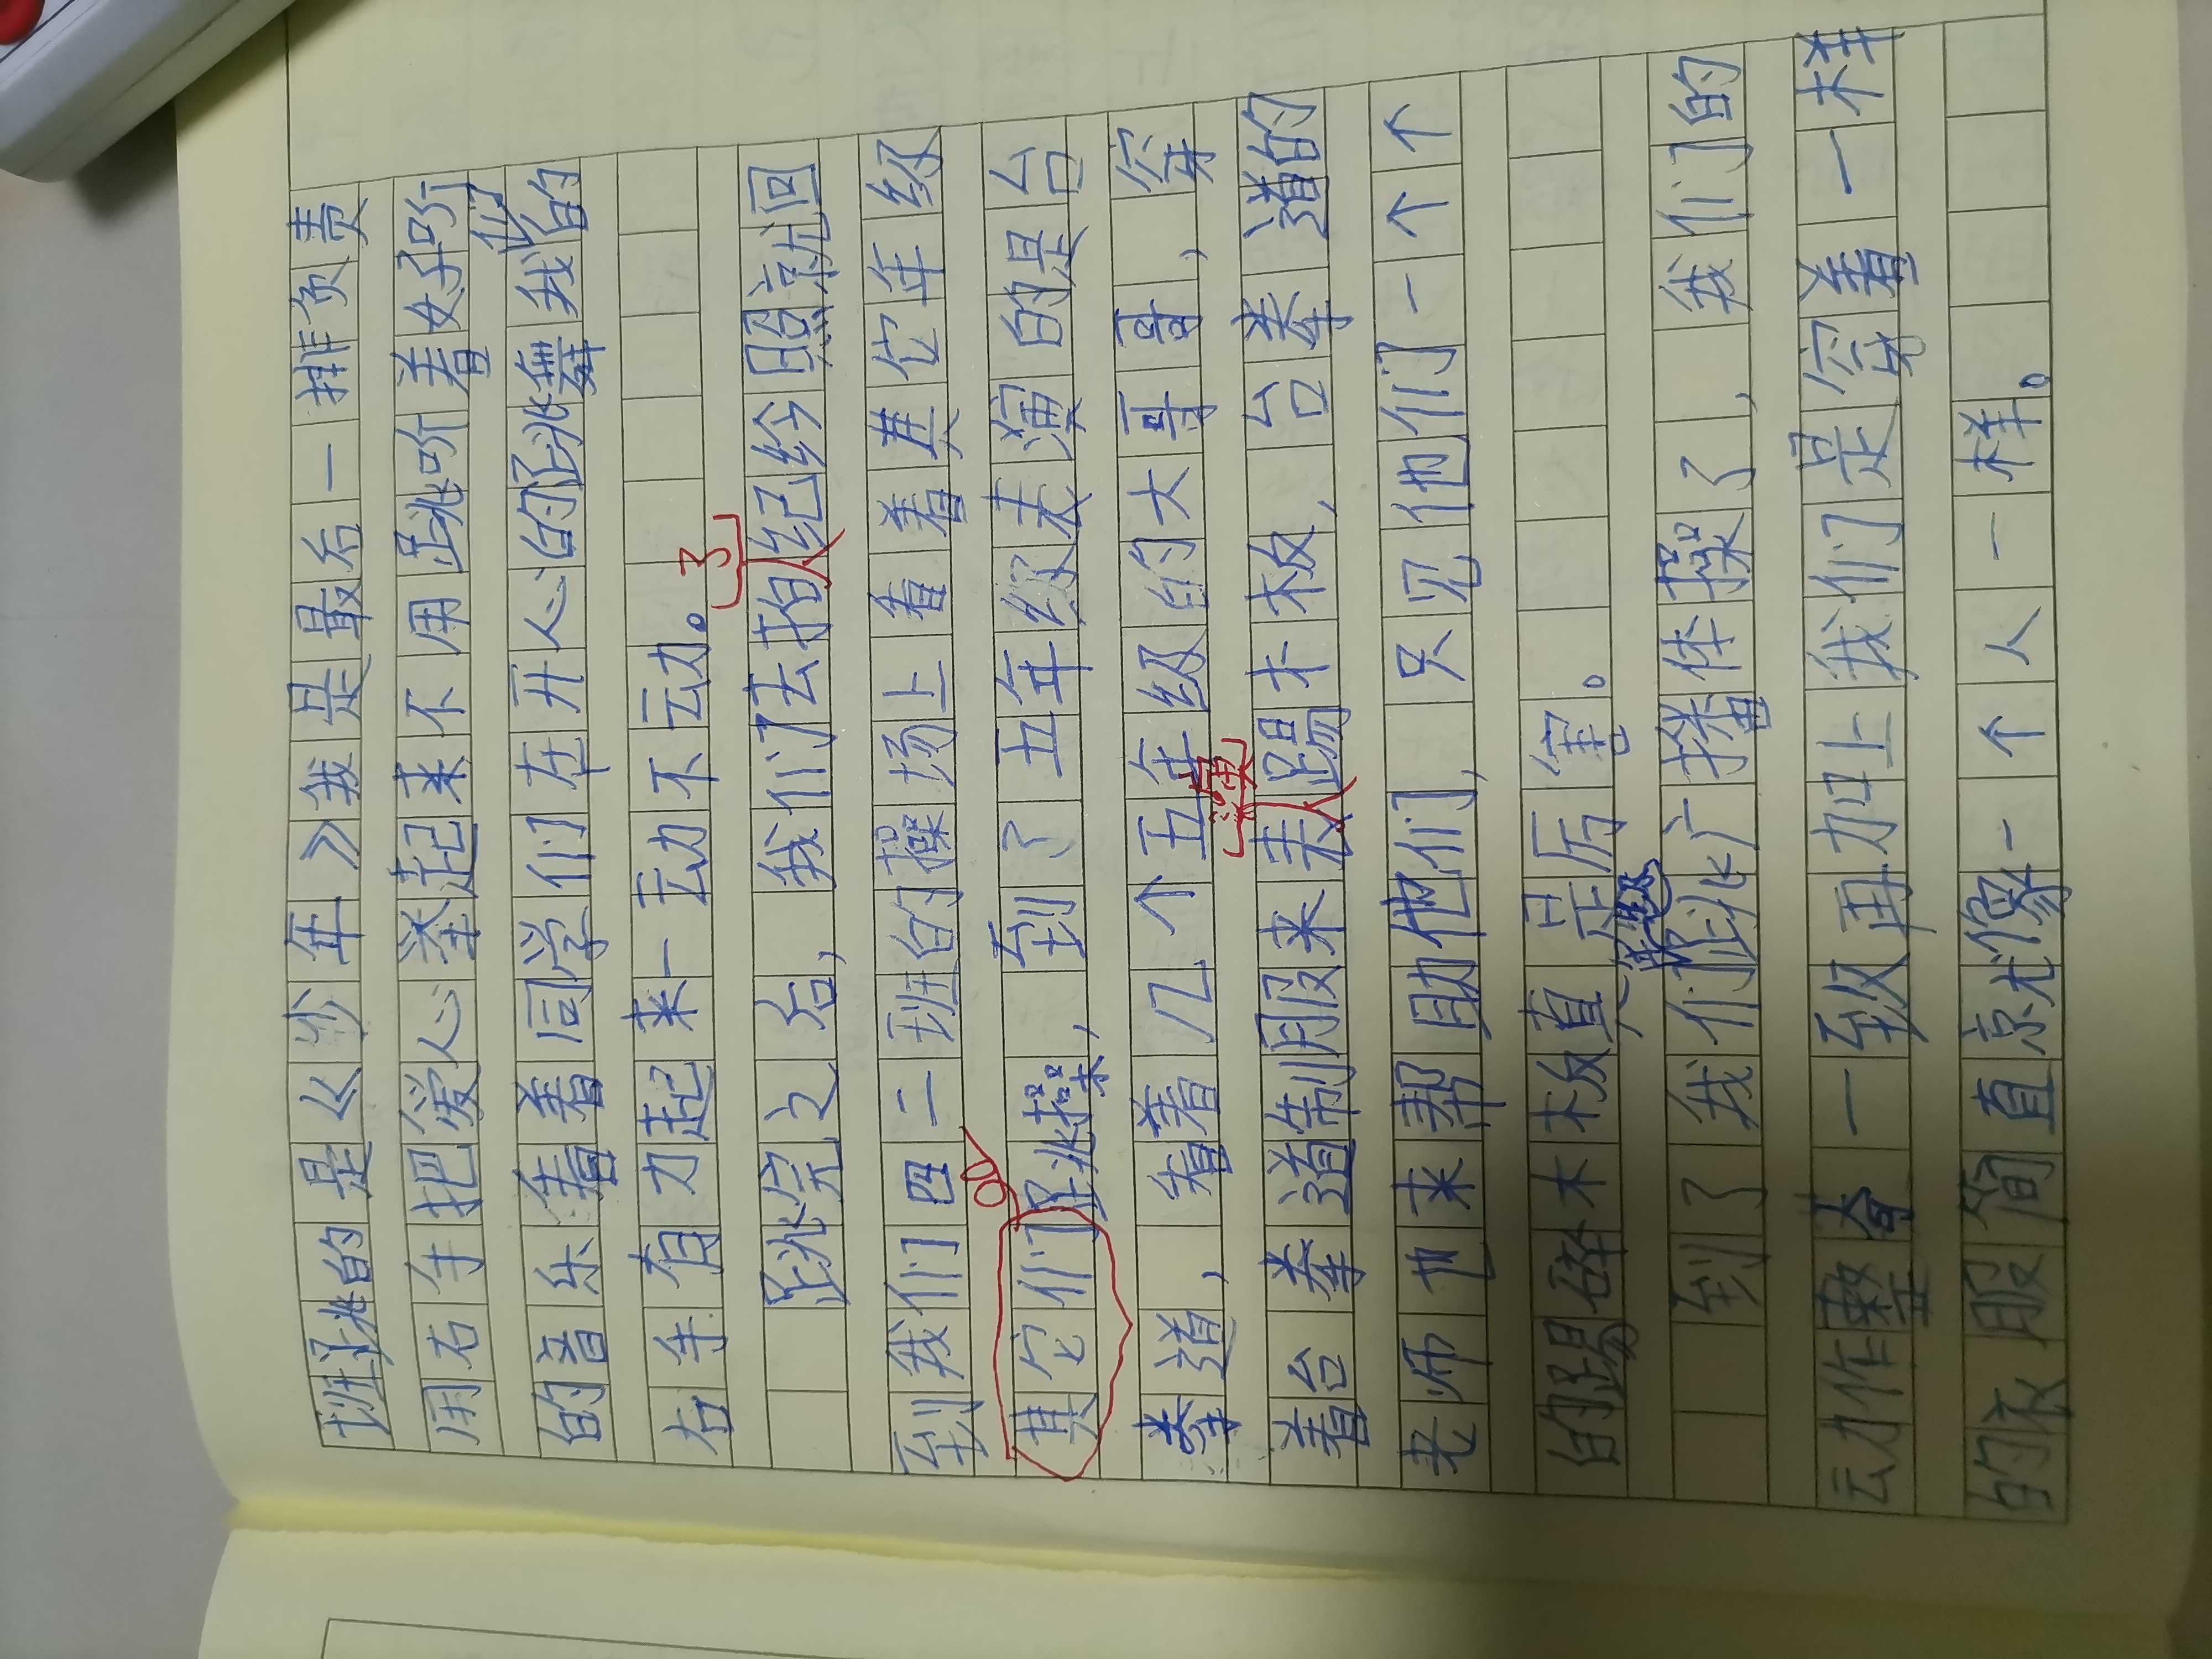 班跳的是《少年》我是最后一排负责
用右手把爱心举起来不用跳听着好听
们
的音乐看着同学们在开人心的跳舞我的
右手有力起来一动不动。
了
跳完之后，我们去拍纪给照就回
到我们四二班的操场上看着其它年级
其它们跳操，到了五年级表演的是台
拳道，看着几个五年级的大哥哥，穿
演
着台拳道制服来表踢木板，台拳道的
老师也来帮助他们，只见他们一个个
的踢碎木板真是厉害。
到了我们跳广播体操了，我们的
动作整齐一致再加上我们是穿着一样
的衣服简直就像一个人一样。